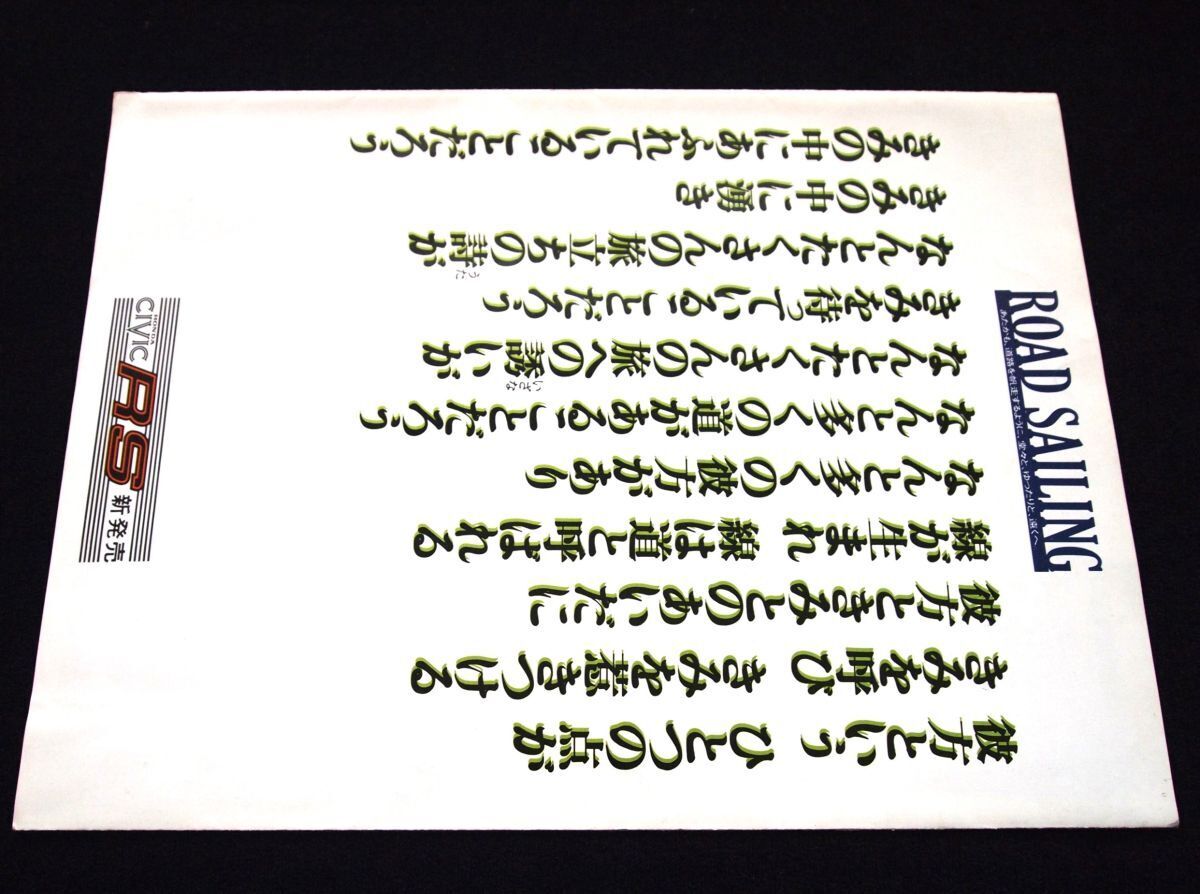 ROAD SAILING
あたかも、道路を帆走するように、堂々と、ゆったりと、遠くへ。
彼方という ひとつの点が
きみを呼び きみを惹きつける
彼方ときみとのあいだに
線が生まれ 線は道と呼ばれる
なんと多くの彼方があり
なんと多くの道があることだろう
なんとたくさんの旅への誘いが
いざな
きみを待っていることだろう
なんとたくさんの旅立ちの詩が
うた
きみの中に湧き
きみの中にあふれていることだろう
HONDA
CIVIC RS 新発売